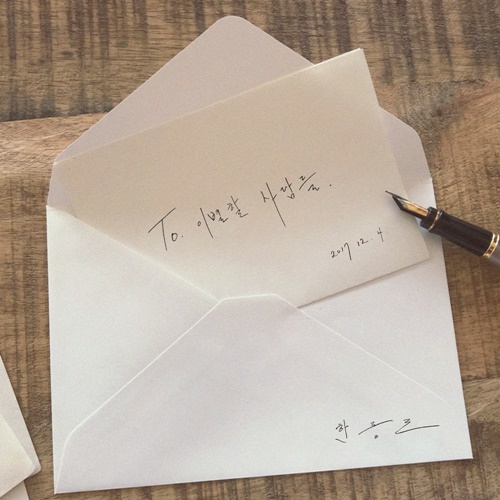 To. 이별할 사람들.
2017 12. 4
한동근